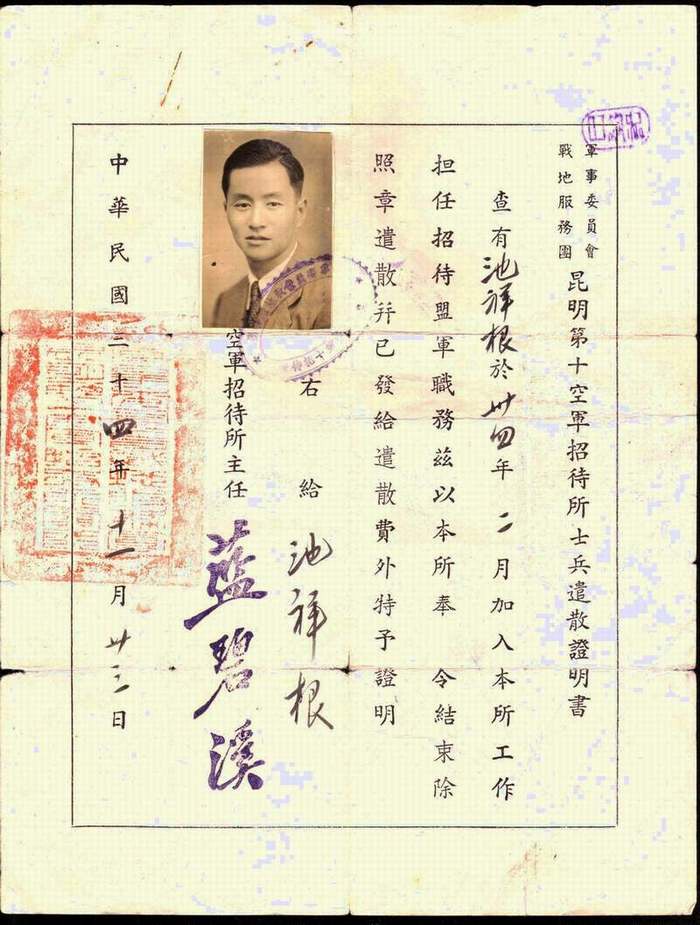 軍事委員會
戰地服務團
昆明第十空軍招待所士兵遣散證明書
查有池祥根於卅四年二月加入本所工作
担任招待盟軍職務茲以本所奉 令結束除
照章遣散幷已發給遣散費外特予證明
右給 池祥根
空軍招待所主任 藍碧溪
中華民國三十四年十一月廿三日